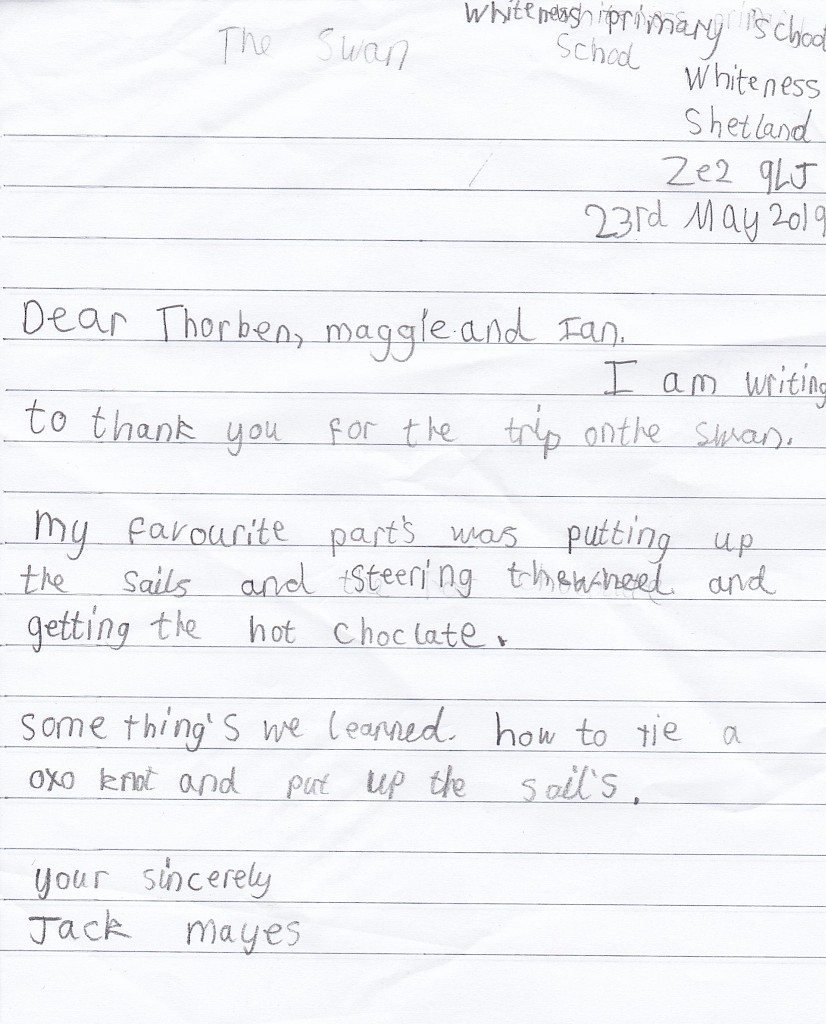 The Swan
Whiteness primary School
School
Whiteness
Shetland
Ze2 9LJ
23rd May 2019
Dear Thorben, maggie and Ian.
I am writing
to thank you for the trip onthe swan.
my favourite part's was putting up
the sails and steering the wheel and
getting the hot choclate.
some thing's we learned. how to tie a
oxo knot and put up the sail's.
your sincerely
Jack mayes